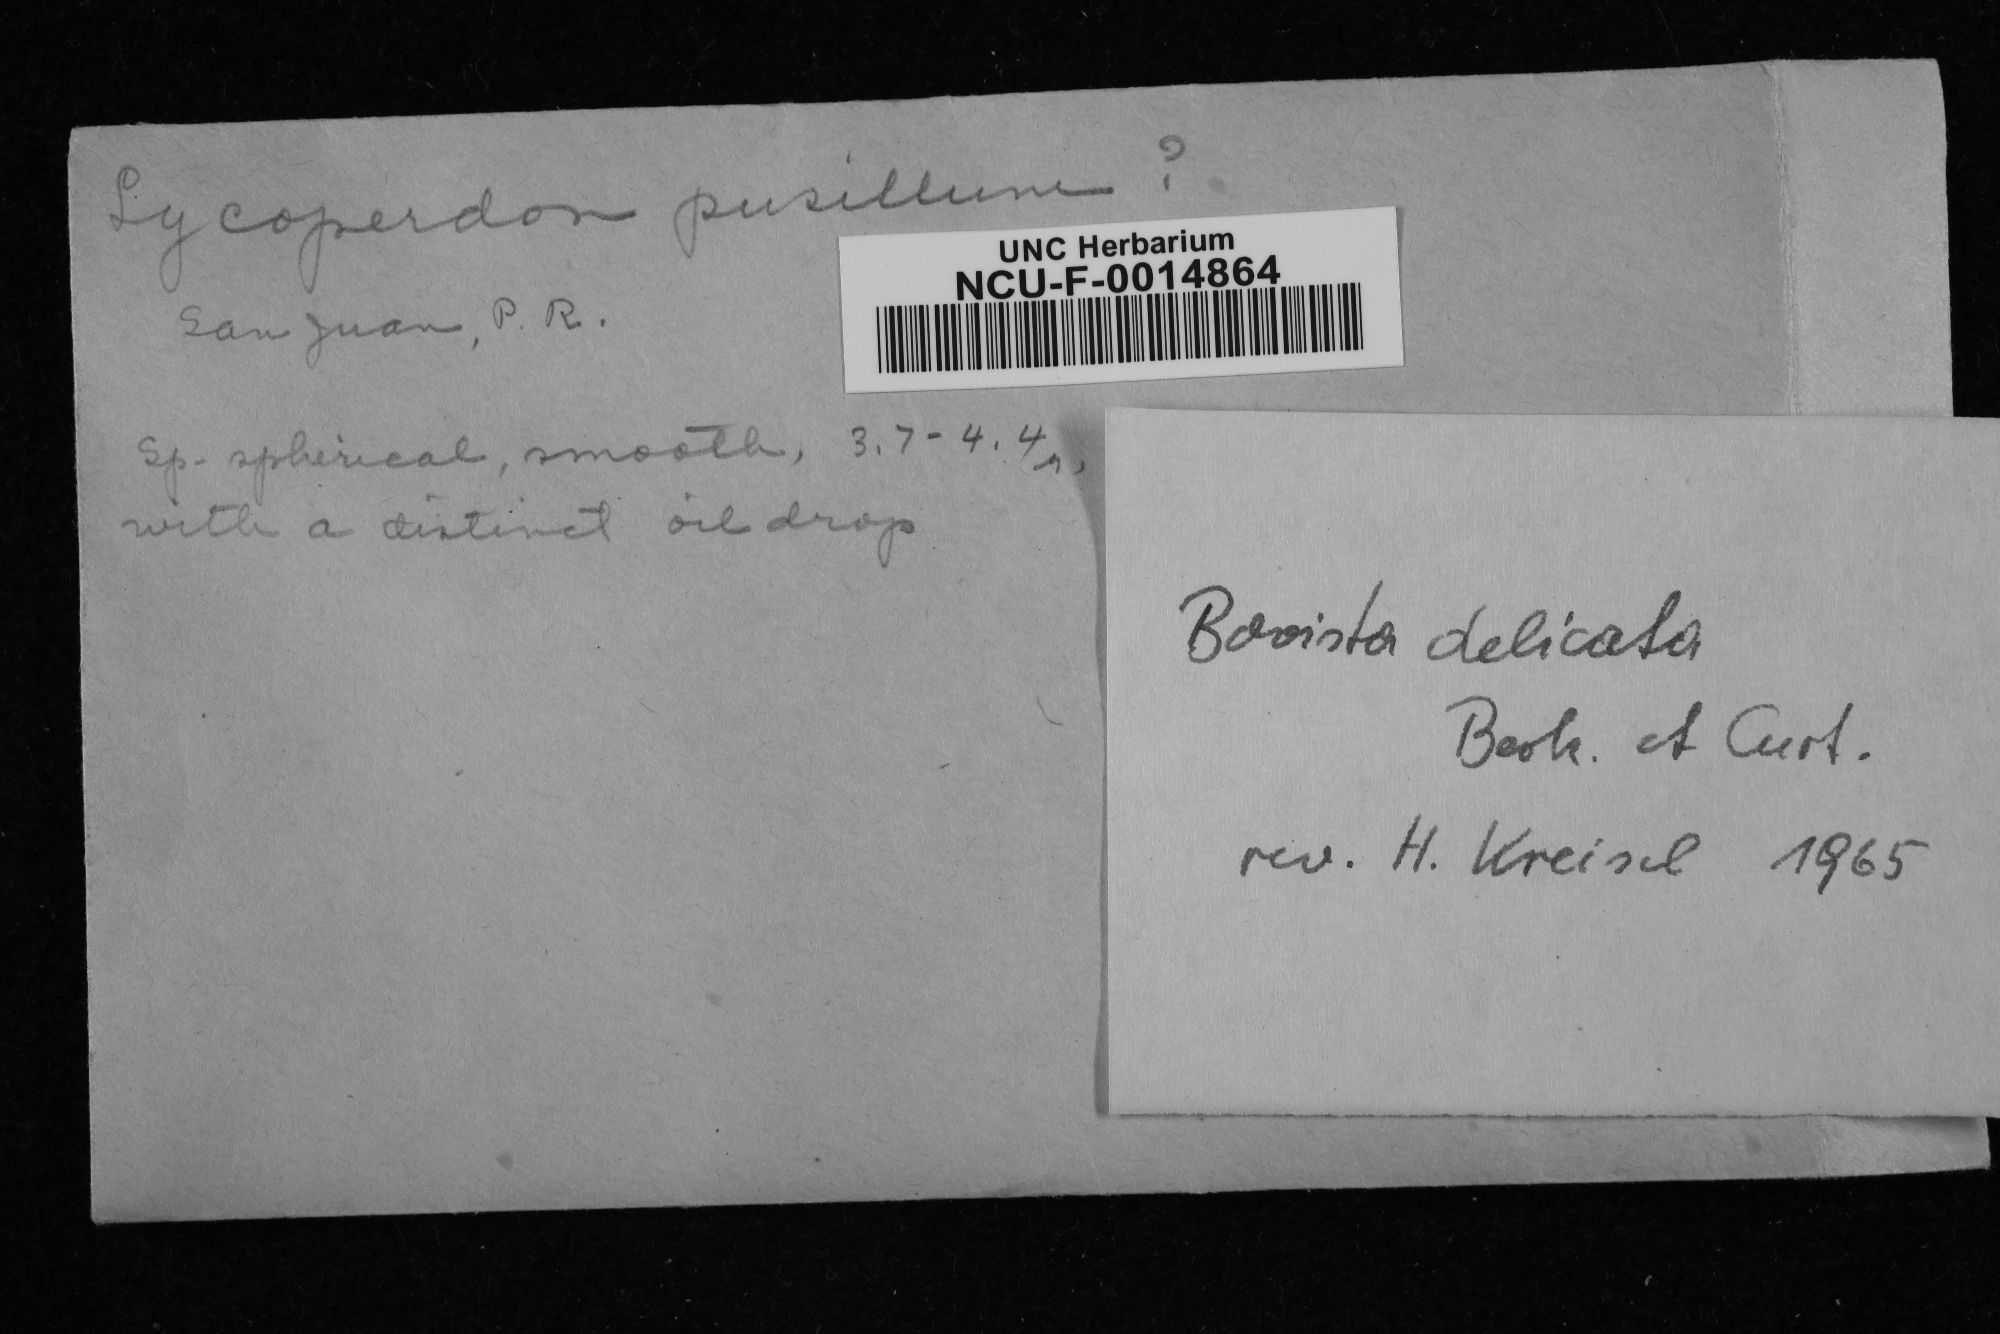 Lycoperdon pusillum ?
San Juan, P. R.
UNC Herbarium
NCU-F-0014864
Sp. spherical, smooth, 3.7-4.4µ,
with a distinct oil drop
Bovista delicata
Berk. et Curt.
rev. H. Kreisel 1965